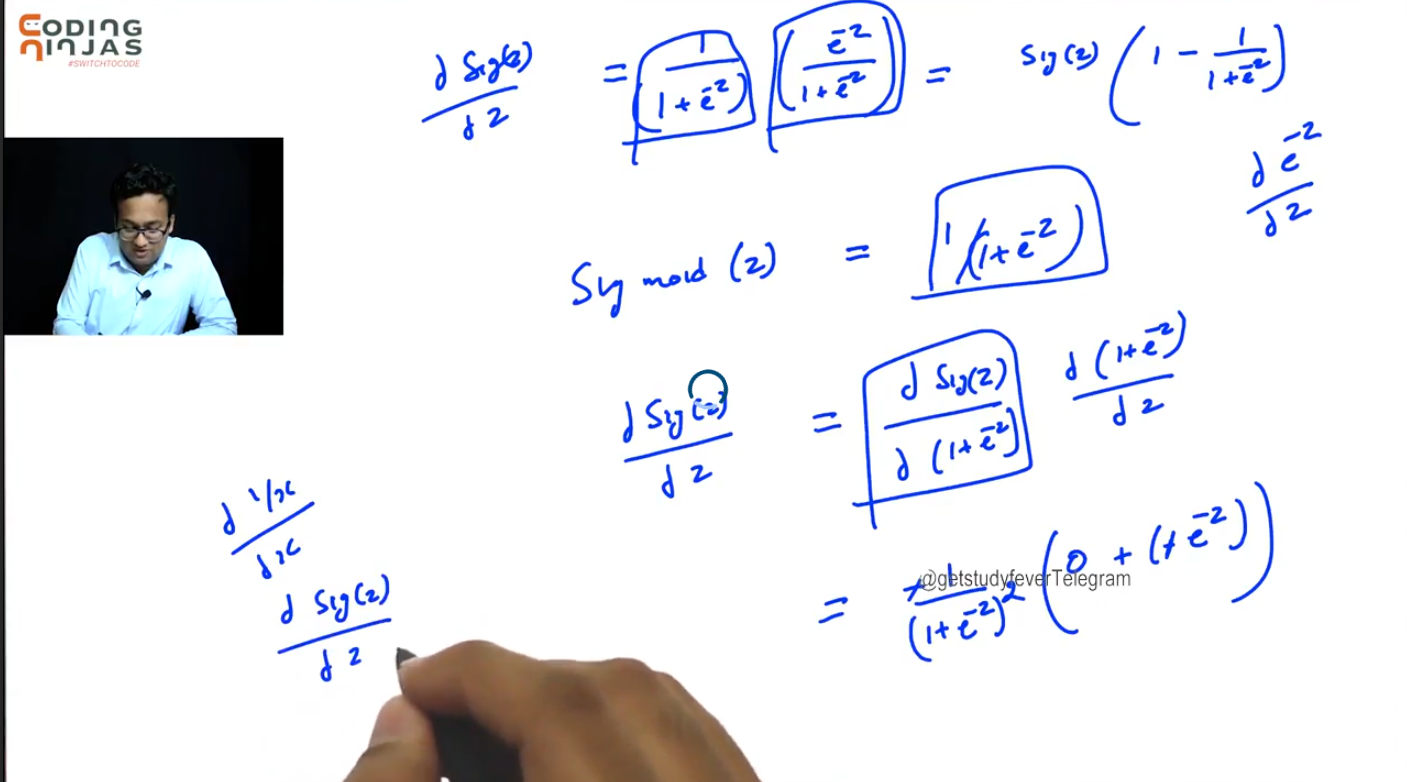 CODING
NINJAS
#SWITCHTOCODE
d Sig(z) / dz = 1 / (1 + e^-z) (e^-z / 1 + e^-z) = Sig(z) (1 - 1 / 1 + e^-z)
d e^-z / dz
Sigmoid (z) = 1/(1 + e^-z)
d Sig(z) / dz = d Sig(z) / d (1 + e^-z) d (1 + e^-z) / dz
d 1/x / dx
= 1 / (1 + e^-z)^2 (0 + (+ e^-z))
@getstudyfeverTelegram
d Sig(z) / dz